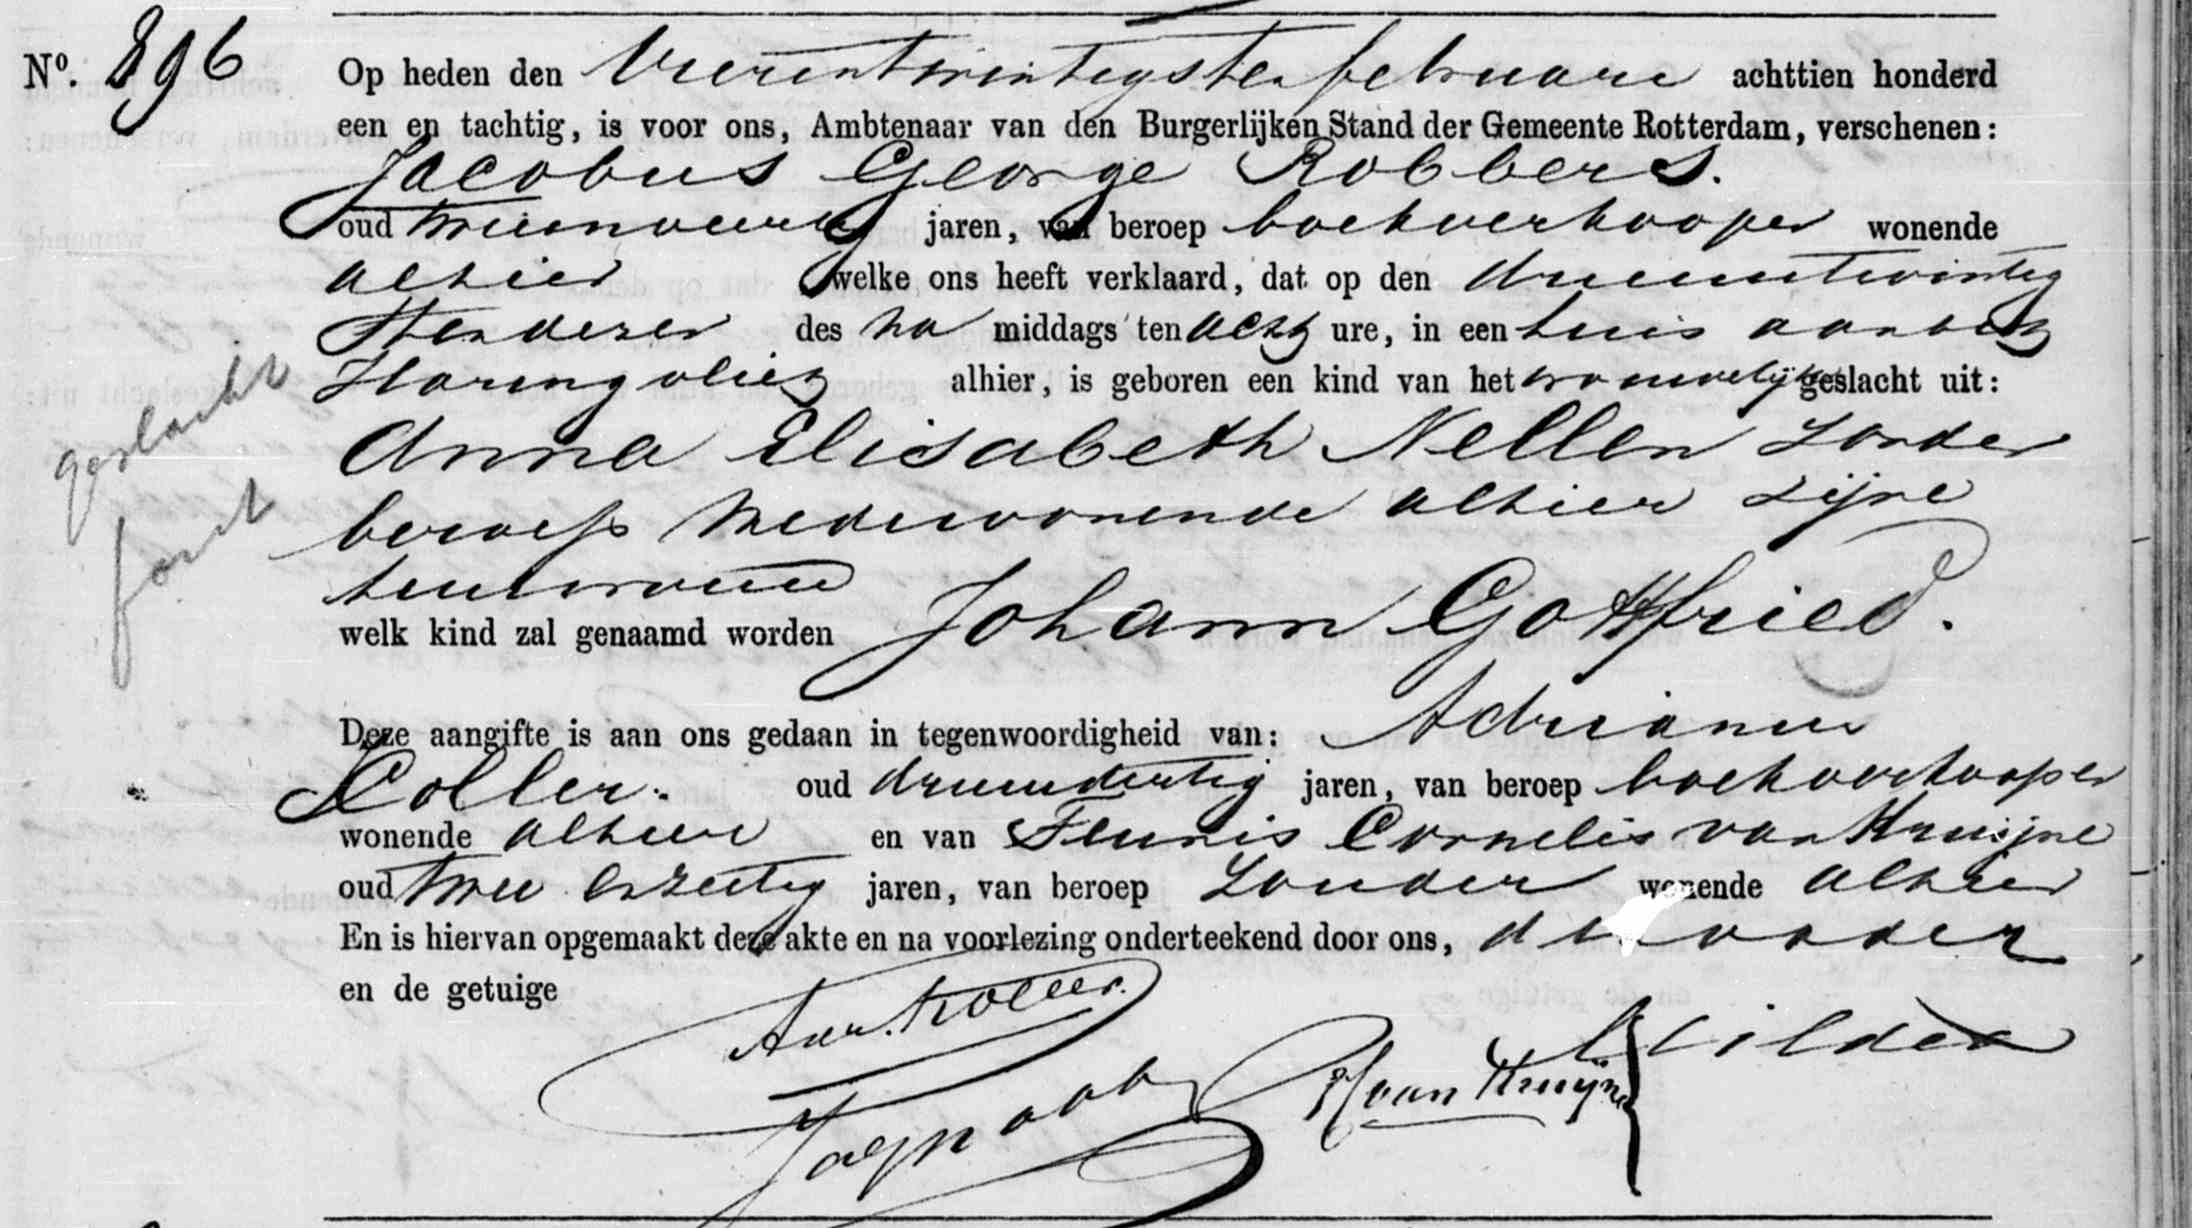 No. 896 Op heden den Vierentwintigsten februari achttien honderd
een en tachtig, is voor ons, Ambtenaar van den Burgerlijken Stand der Gemeente Rotterdam, verschenen:
Jacobus George Robbers.
oud tweenveertig jaren, van beroep boekverkooper wonende
alhier welke ons heeft verklaard, dat op den drieentwintig
sten dezer des na middags ten acht ure, in een huis aan het
Haringvliet alhier, is geboren een kind van het vrouwelijk geslacht uit:
geslacht
fout
Anna Elisabeth Nellen zonder
beroep medewonende alhier zijne
huisvrouw
welk kind zal genaamd worden Johann Gottfried.
Deze aangifte is aan ons gedaan in tegenwoordigheid van: Adrianus
Koller. oud drieendertig jaren, van beroep boekverkooper
wonende alhier en van Teunis Cornelis van Kruijne
oud twee enzestig jaren, van beroep zonder wonende alhier
En is hiervan opgemaakt deze akte en na voorlezing onderteekend door ons, de vader
en de getuige
Adr. Koller.
van Kruijne